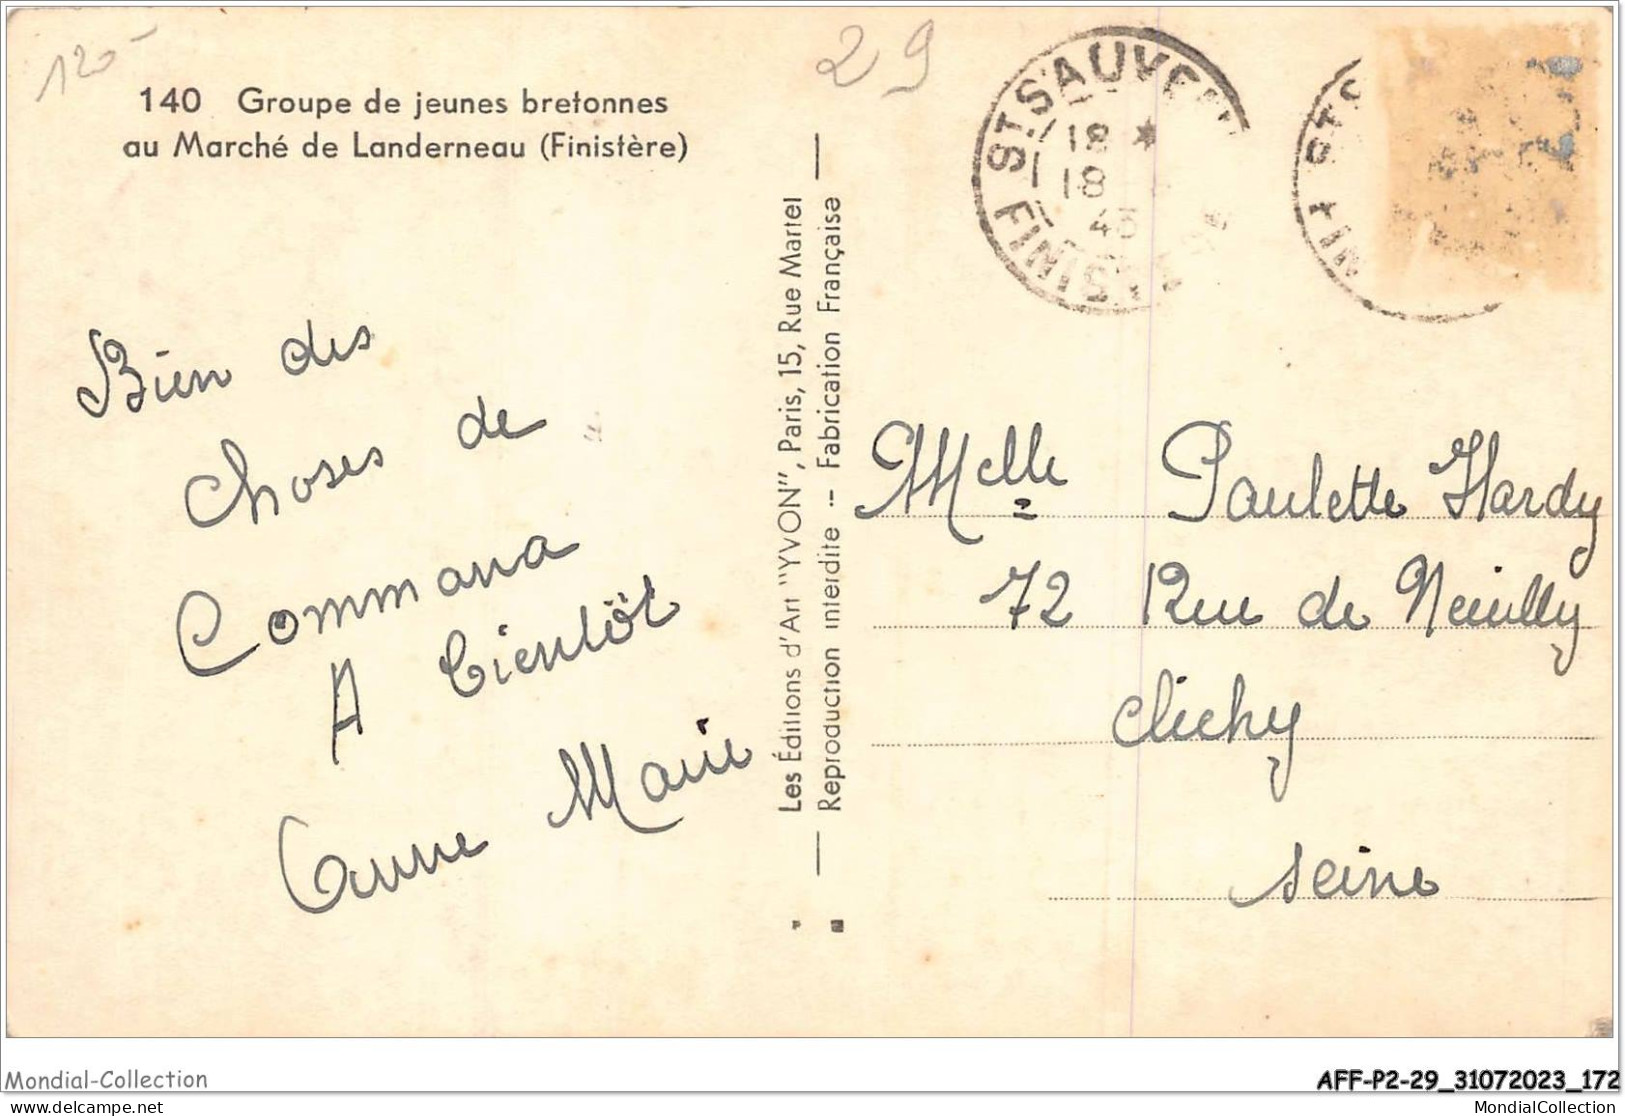 120
29
140 Groupe de jeunes bretonnes
au Marché de Landerneau (Finistère)
ST SAUVEU
18 *
18
FINISTERE
Bien des
choses de
Commana
A bientôt
Anne Marie
Les Éditions d'Art "YVON", Paris, 15, Rue Martel
Reproduction interdite -- Fabrication Française
Melle Paulette Hardy
72 Rue de Neuilly
Clichy
Seine
Mondial-Collection
AFF-P2-29_31072023_172
delcampe.net
MondialCollection